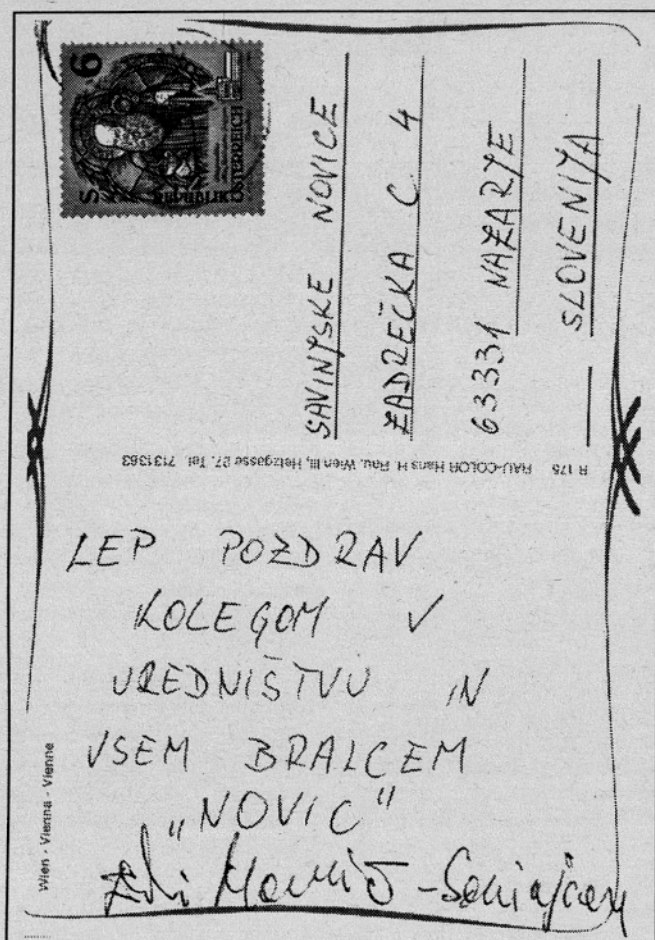 6
S
REPUBLIK
ÖSTERREICH
SAVINJSKE NOVICE
ZADREČKA C 4
63331 NAZARJE
SLOVENIJA
R 175 RAU-COLOR Hans H. Rau. Wien III, Hetzgasse 27. Tel. 7131363
LEP POZDRAV
KOLEGOM V
UREDNIŠTVU IN
VSEM BRALCEM
„NOVIC"
Wien - Vienna - Vienne